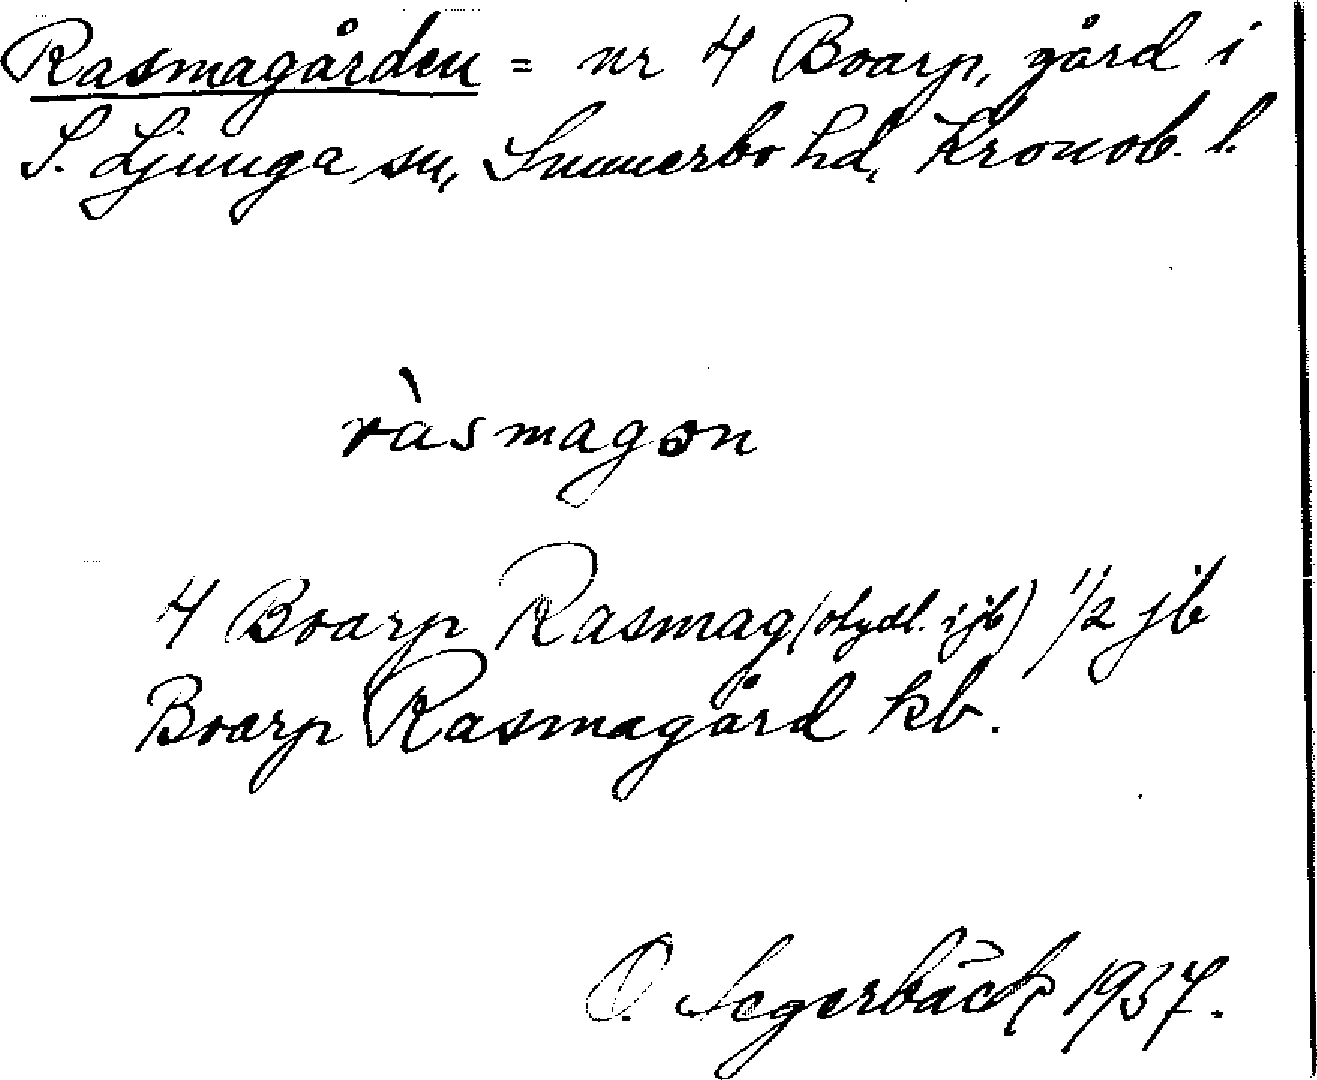 Rasmagården = nr 4 Boarp, gård i
S. Ljunga sn, Sunnerbo hd, Kronob. l.
ràsmagon
4 Boarp Rasmag (otydl. i jb) 1/2 jb
Boarp Rasmagård kb.
O. Segerbäck 1937.